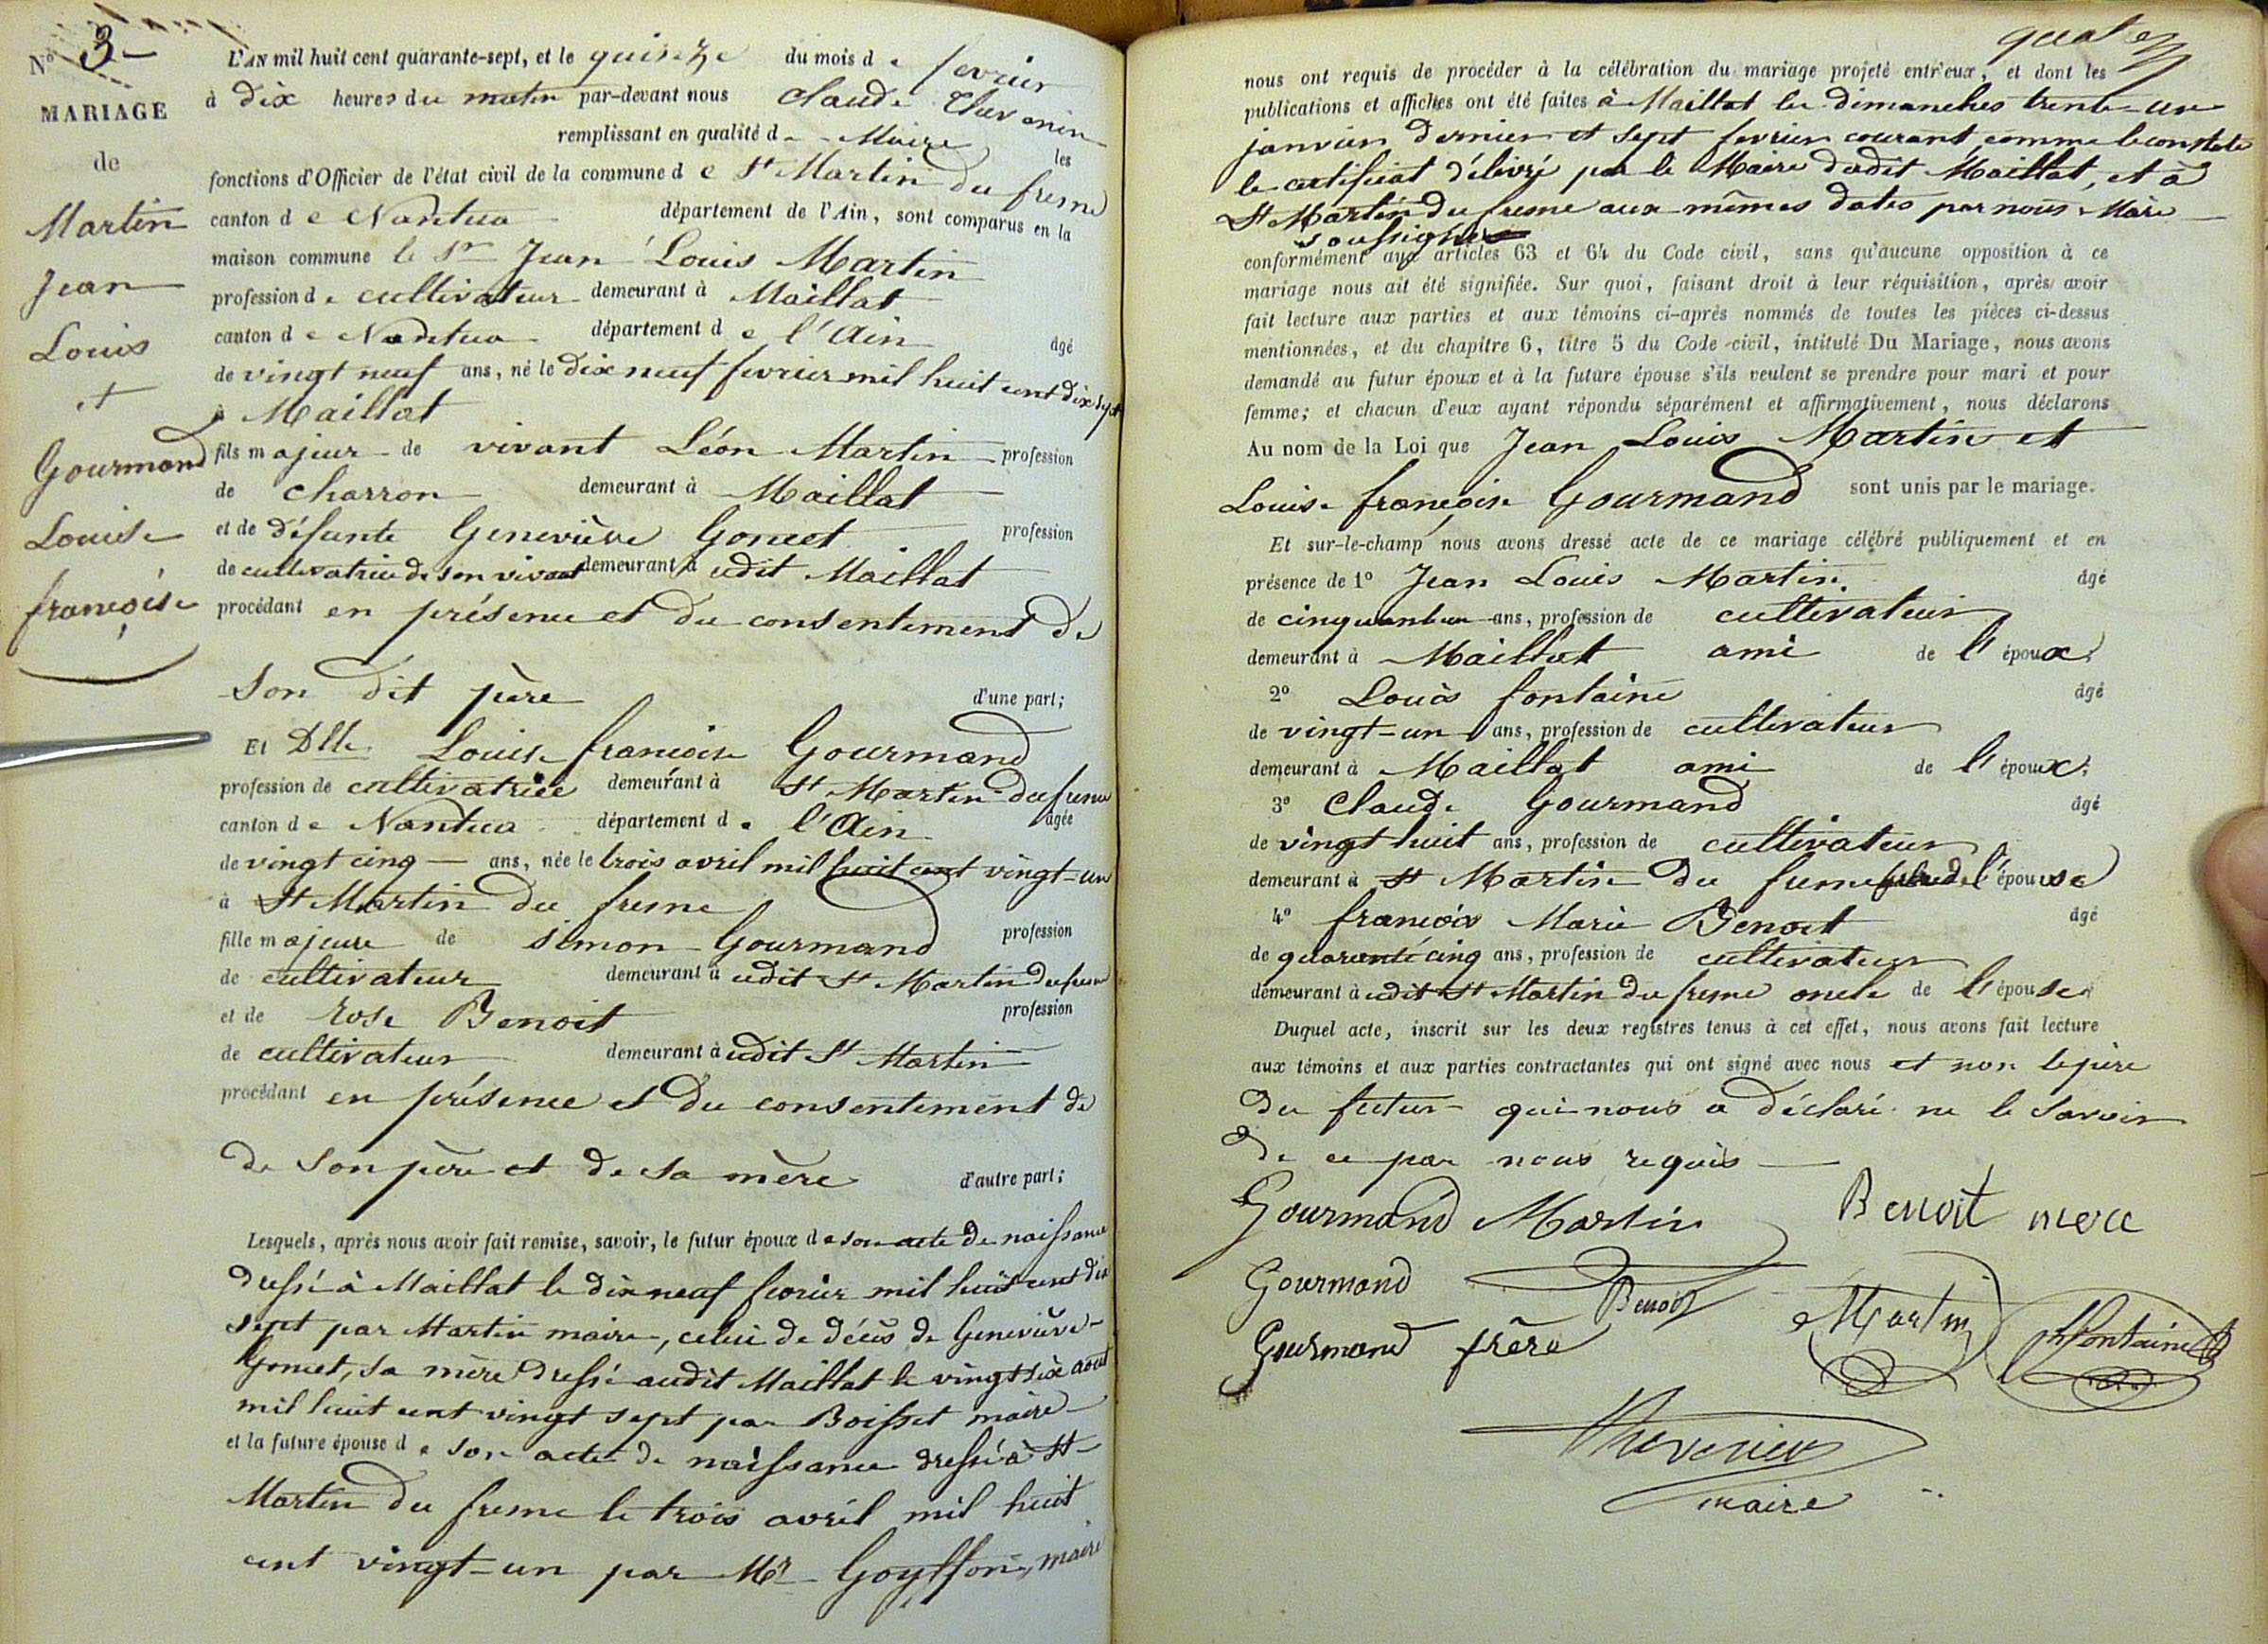 N° 3
MARIAGE
de
Martin
Jean
Louis
et
Gourmand
Louise
françoise
L'AN mil huit cent quarante-sept, et le quinze du mois de fevrier
à dix heures du matin par-devant nous Claude Thevenin
remplissant en qualité de Maire les
fonctions d'Officier de l'état civil de la commune de St Martin du fresne
canton de Nantua département de l'Ain, sont comparus en la
maison commune le Sr Jean Louis Martin
profession de cultivateur demeurant à Maillat
canton de Nantua département de l'Ain âgé
de vingt neuf ans, né le dix neuf fevrier mil huit cent dix sept
à Maillat
fils majeur de vivant Léon Martin profession
de charron demeurant à Maillat
et de défunte Geneviève Goncet profession
de cultivatrice de son vivant demeurant à udit Maillat
procédant en présence et du consentement de
son dit père d'une part;
Et Dlle Louise françoise Gourmand
profession de cultivatrice demeurant à St Martin du fresne
canton de Nantua département de l'Ain âgée
de vingt cinq ans, née le trois avril mil huit cent vingt-un
à St Martin du fresne
fille majeure de simon Gourmand profession
de cultivateur demeurant à udit St Martin du fresne
et de Rose Benoit profession
de cultivateur demeurant à udit St Martin
procédant en présence et du consentement de
de son père et de sa mère d'autre part;
Lesquels, après nous avoir fait remise, savoir, le futur époux de son acte de naissance
dressé à Maillat le dix neuf fevrier mil huit cent dix
sept par Martin maire, celui de décès de Geneviève
Goncet, sa mère dressé audit Maillat le vingt six aout
mil huit cent vingt sept par Boisset maire
et la future épouse de son acte de naissance dressé à St
Martin du fresne le trois avril mil huit
cent vingt-un par Mr Goyffon, maire
quatre
nous ont requis de procéder à la célébration du mariage projeté entr'eux, et dont les
publications et affiches ont été faites à Maillat les dimanches trente-un
janvier dernier et sept fevrier courant, comme le constate
le certificat délivré par le Maire dudit Maillat, et à
St Martin du fresne aux mêmes dates par nous Maire
soussigné
conformément aux articles 63 et 64 du Code civil, sans qu'aucune opposition à ce
mariage nous ait été signifiée. Sur quoi, faisant droit à leur réquisition, après avoir
fait lecture aux parties et aux témoins ci-après nommés de toutes les pièces ci-dessus
mentionnées, et du chapitre 6, titre 5 du Code civil, intitulé Du Mariage, nous avons
demandé au futur époux et à la future épouse s'ils veulent se prendre pour mari et pour
femme; et chacun d'eux ayant répondu séparément et affirmativement, nous déclarons
Au nom de la Loi que Jean Louis Martin et
Louise françoise Gourmand sont unis par le mariage.
Et sur-le-champ nous avons dressé acte de ce mariage célébré publiquement et en
présence de 1° Jean Louis Martin âgé
de cinquante un ans, profession de cultivateur
demeurant à Maillat ami de l'époux;
2° Louis fontaine âgé
de vingt-un ans, profession de cultivateur
demeurant à Maillat ami de l'époux;
3° Claude Gourmand âgé
de vingt huit ans, profession de cultivateur
demeurant à St Martin du fresne de l'épouse
4° françois Marie Benoit âgé
de quarante cinq ans, profession de cultivateur
demeurant à udit St Martin du fresne oncle de l'épouse
Duquel acte, inscrit sur les deux registres tenus à cet effet, nous avons fait lecture
aux témoins et aux parties contractantes qui ont signé avec nous et non le père
du futur qui nous a déclaré ne le savoir
de ce par nous requis
Gourmand Martin Benoit mere
Gourmand Benoit Martin fontaine
Gourmand frère
Thevenin
maire